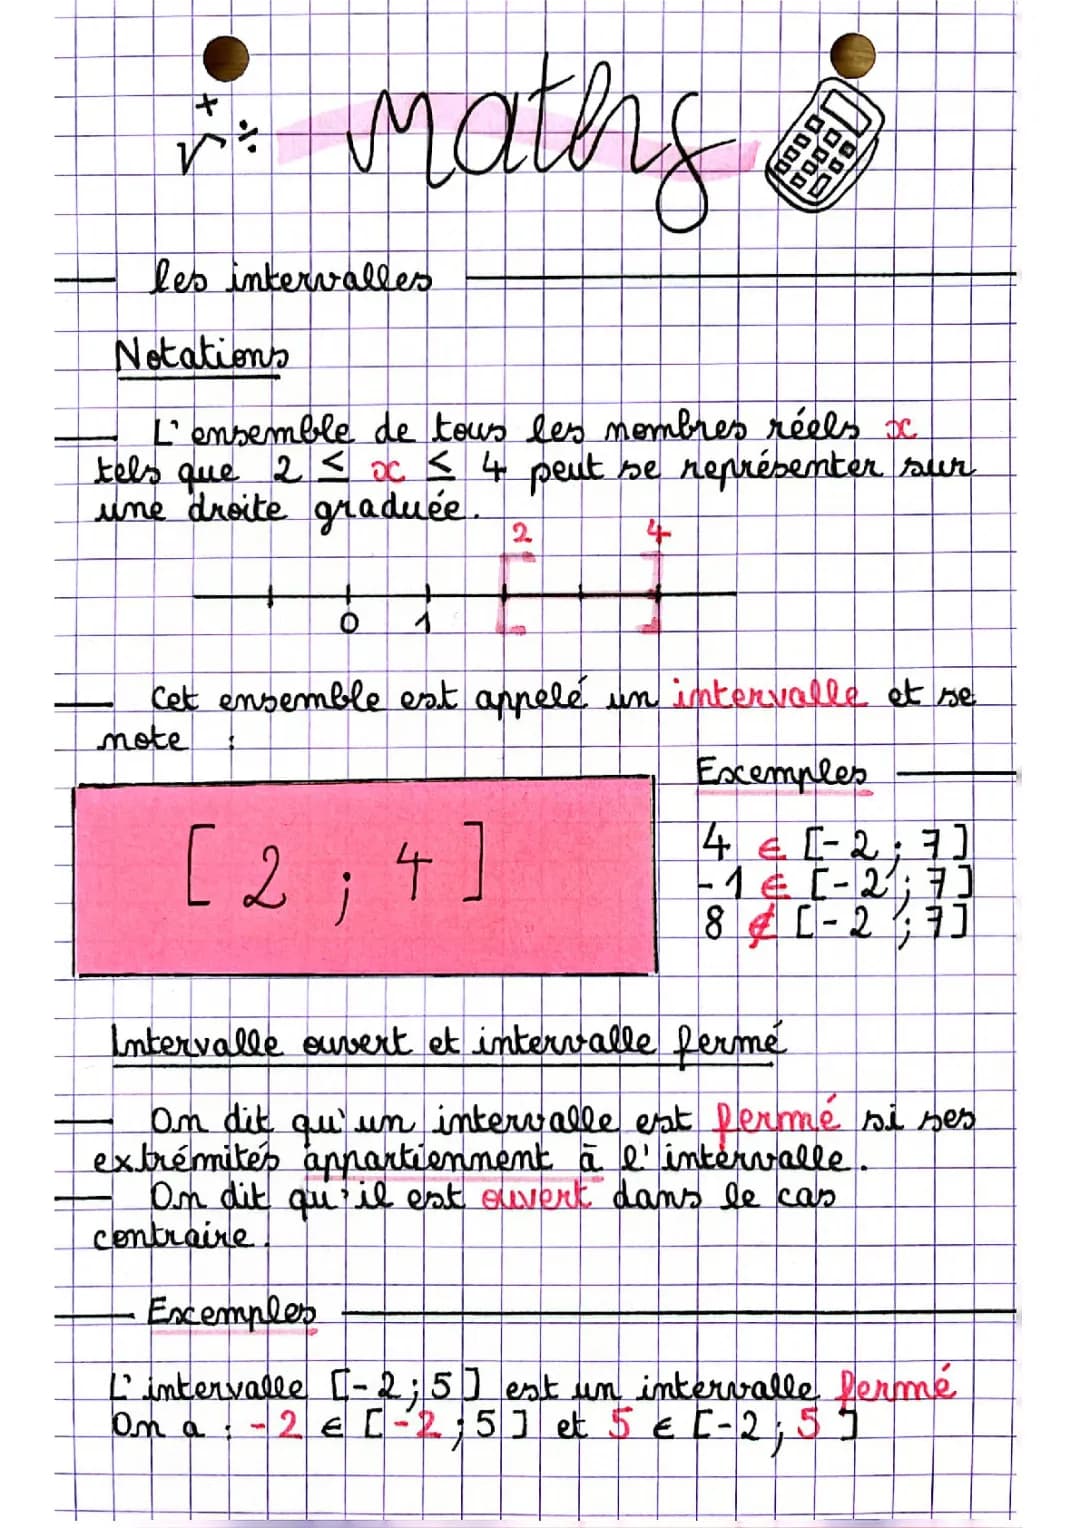 +
√ ÷ Maths
les intervalles
Notations
L'ensemble de tous les nombres réels x
tels que 2 ≤ x ≤ 4 peut se représenter sur
une droite graduée.
2 4
0 1
Cet ensemble est appelé un intervalle et se
note :
[ 2 ; 4 ]
Exemples
4 ∈ [-2 ; 7]
-1 ∈ [-2 ; 7]
8 ∉ [-2 ; 7]
Intervalle ouvert et intervalle fermé
On dit qu'un intervalle est fermé si ses
extrémités appartiennent à l'intervalle.
On dit qu'il est ouvert dans le cas
contraire.
Exemples
L'intervalle [-2 ; 5] est un intervalle fermé
On a : -2 ∈ [-2 ; 5] et 5 ∈ [-2 ; 5]